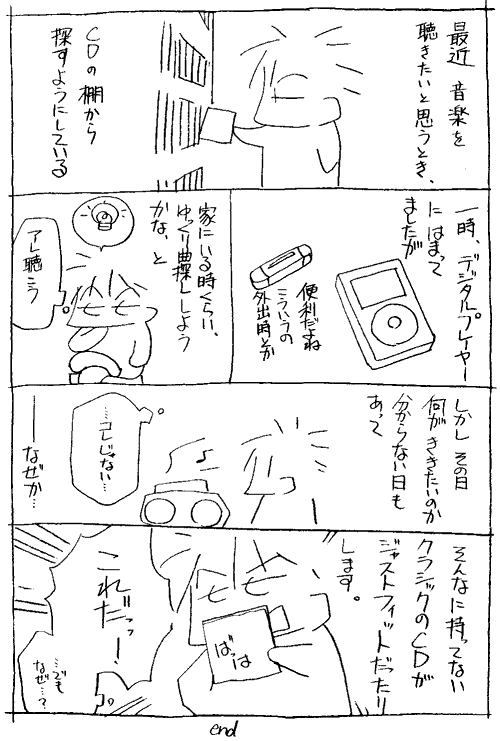 最近 音楽を
聴きたいと思うとき、
CDの棚から
探すようにしている
一時、デジタルプレイヤー
にはまって
ましたが
便利だよね
こういうの
外出時とか
家にいる時くらい、
ゆっくり曲探ししよう
かな、と
アレ聴こう
しかし その日
何がききたいのか
分からない日も
あって
…コレじゃない…
――なぜか…
そんなに持ってない
クラシックのCDが
ジャストフィットだったり
します。
ばっは
これだっっ!
…でも
なぜ…?
end